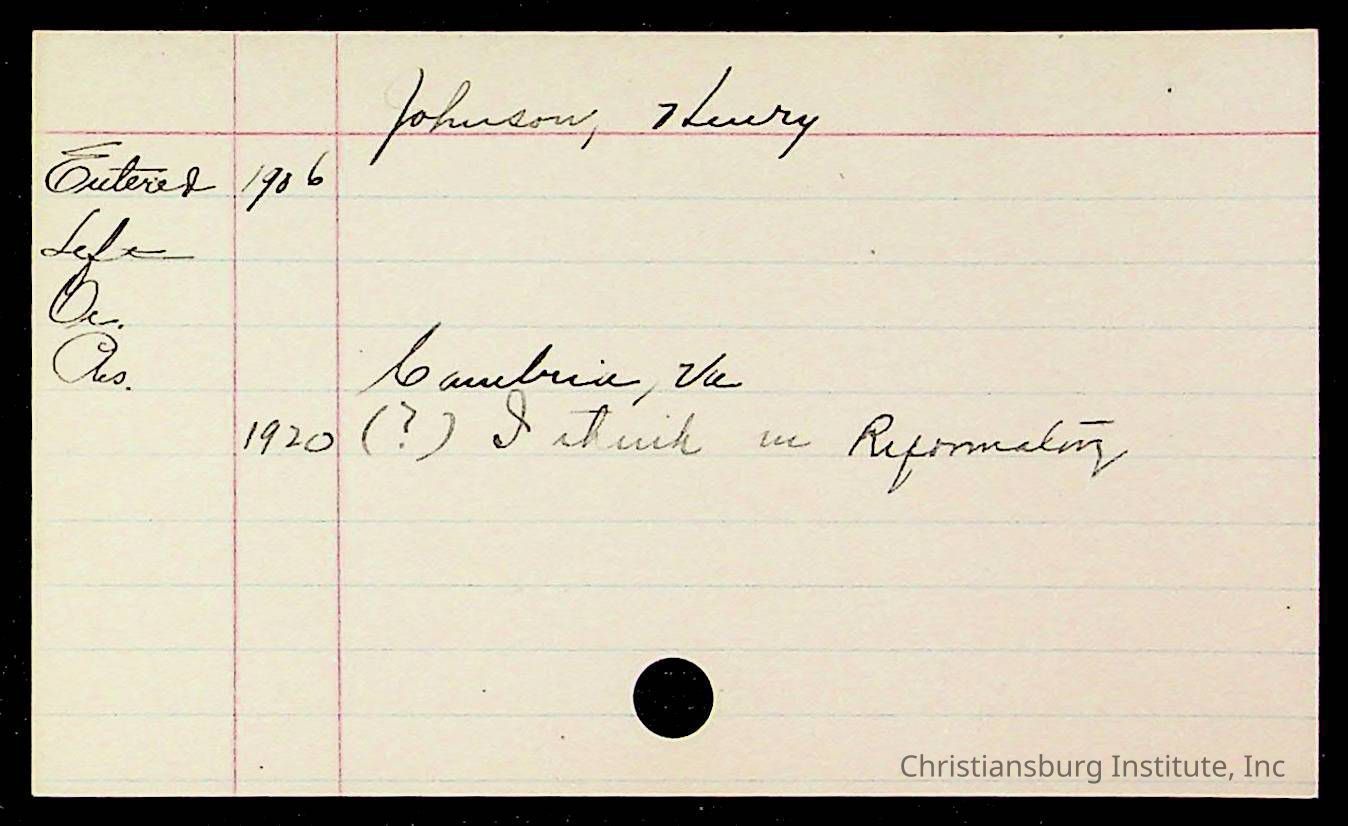 Johnson, Henry
Entered 1906
Left
Oc.
Res.
Cambria, Va
1920 (?) I think in Reformatory
Christiansburg Institute, Inc